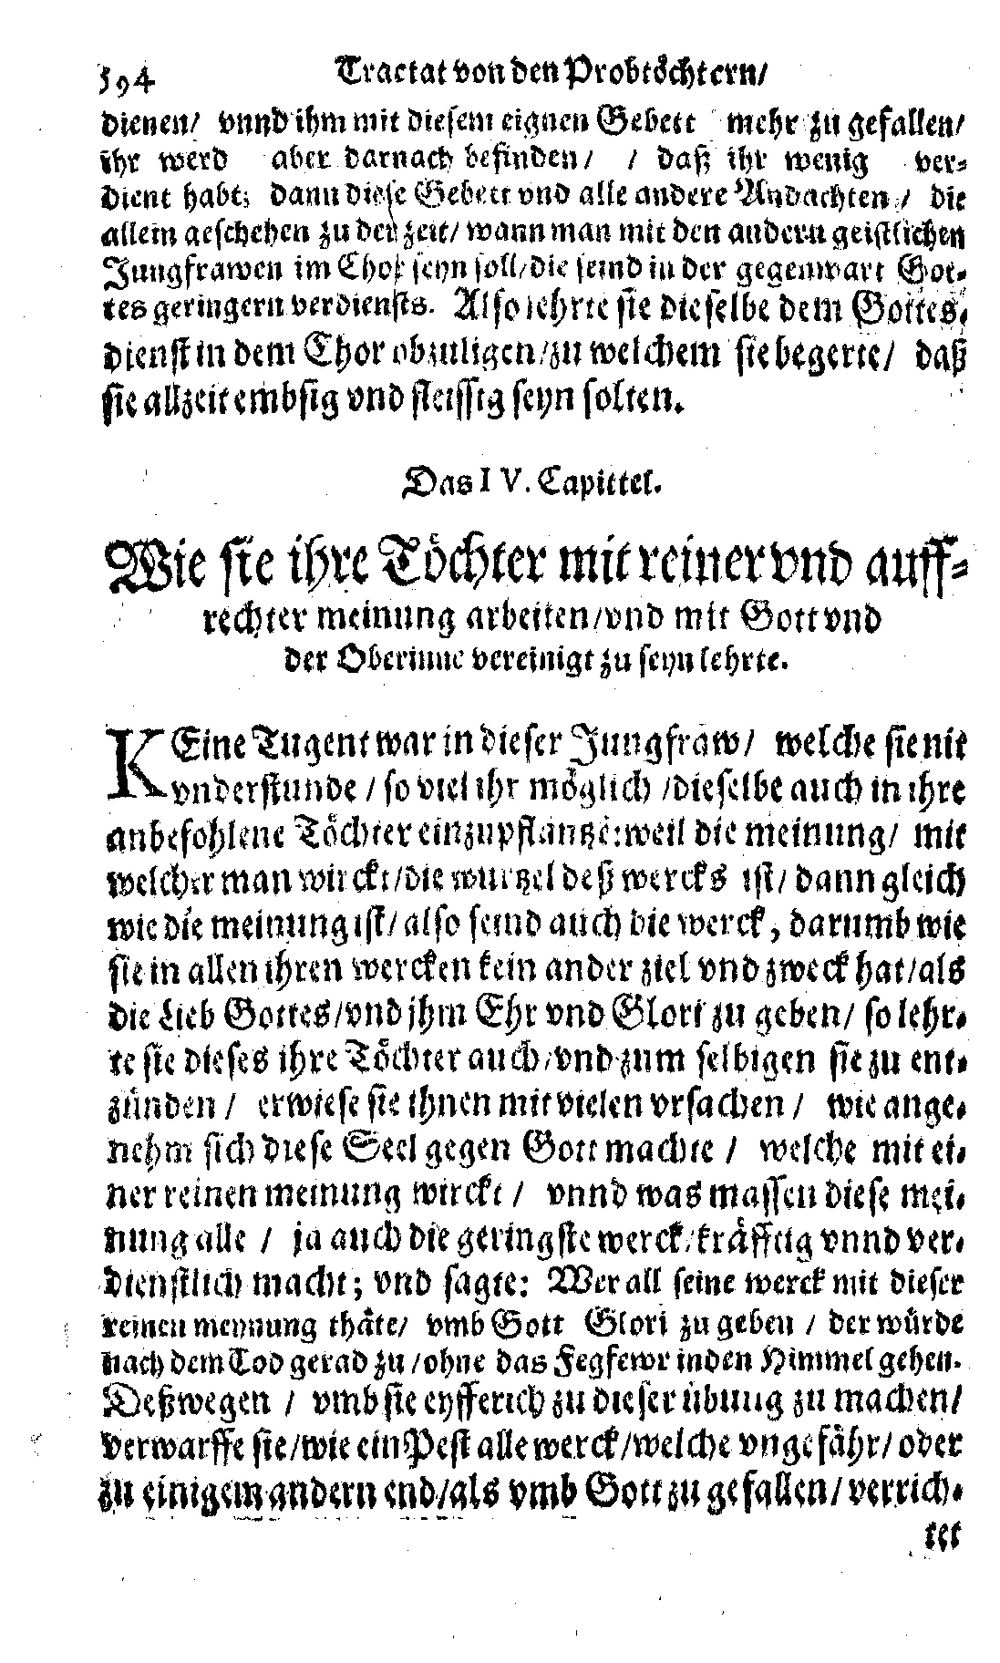 594 Tractat von den Probtöchtern/
dienen/ vnnd ihm mit diesem eignen Gebett mehr zu gefallen/
ihr werd aber darnach befinden/ / daß ihr wenig ver-
dient habt; dann diese Gebett vnd alle andere Andachten / die
allein geschehen zu der zeit/ wann man mit den andern geistlichen
Jungfrawen im Chor seyn soll/ die seind in der gegenwart Got-
tes geringern verdiensts. Also lehrte sie dieselbe dem Gottes-
dienst in dem Chor obzuligen/ zu welchem sie begerte/ daß
sie allzeit embsig vnd fleissig seyn solten.
Das IV. Capittel.
Wie sie ihre Töchter mit reiner vnd auff-
rechter meinung arbeiten/ vnd mit Gott vnd
der Oberinne vereinigt zu seyn lehrte.
KEine Tugent war in dieser Jungfraw/ welche sie nit
vnderstunde / so viel ihr möglich /dieselbe auch in ihre
anbefohlene Töchter einzupflantzē: weil die meinung/ mit
welcher man wirckt/ die wurtzel deß wercks ist/ dann gleich
wie die meinung ist/ also seind auch die werck, darumb wie
sie in allen ihren wercken kein ander ziel vnd zweck hat/ als
die Lieb Gottes/ vnd jhm Ehr vnd Glori zu geben/ so lehr-
te sie dieses ihre Töchter auch/ vnd zum selbigen sie zu ent-
zünden / erwiese sie ihnen mit vielen vrsachen / wie ange-
nehm sich diese Seel gegen Gott machte / welche mit ei-
ner reinen meinung wirckt / vnnd was massen diese mei-
nung alle / ja auch die geringste werck/ kräfftig vnnd ver-
dienstlich macht; vnd sagte: Wer all seine werck mit dieser
reinen meynung thäte/ vmb Gott Glori zu geben / der würde
nach dem Tod gerad zu / ohne das Fegfewr in den Himmel gehen.
Deßwegen / vmb sie eyfferich zu dieser übung zu machen/
verwarffe sie/ wie ein Pest alle werck/ welche vngefähr/ oder
zu einigem andern end/ als vmb Gott zu gefallen/ verrich-
tet